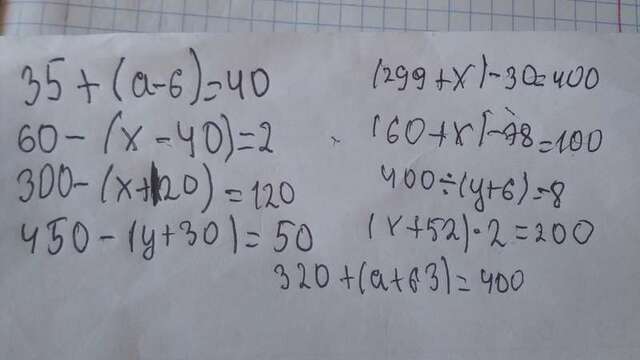 35 + (a-6)=40
60 - (x - 40)=2
300 - (x+120) = 120
450 - (y+30)= 50
(299 + x) - 30=400
(60+x) - 78=100
400÷(y+6)=8
(x+52) · 2 = 200
320 + (a+63)= 400